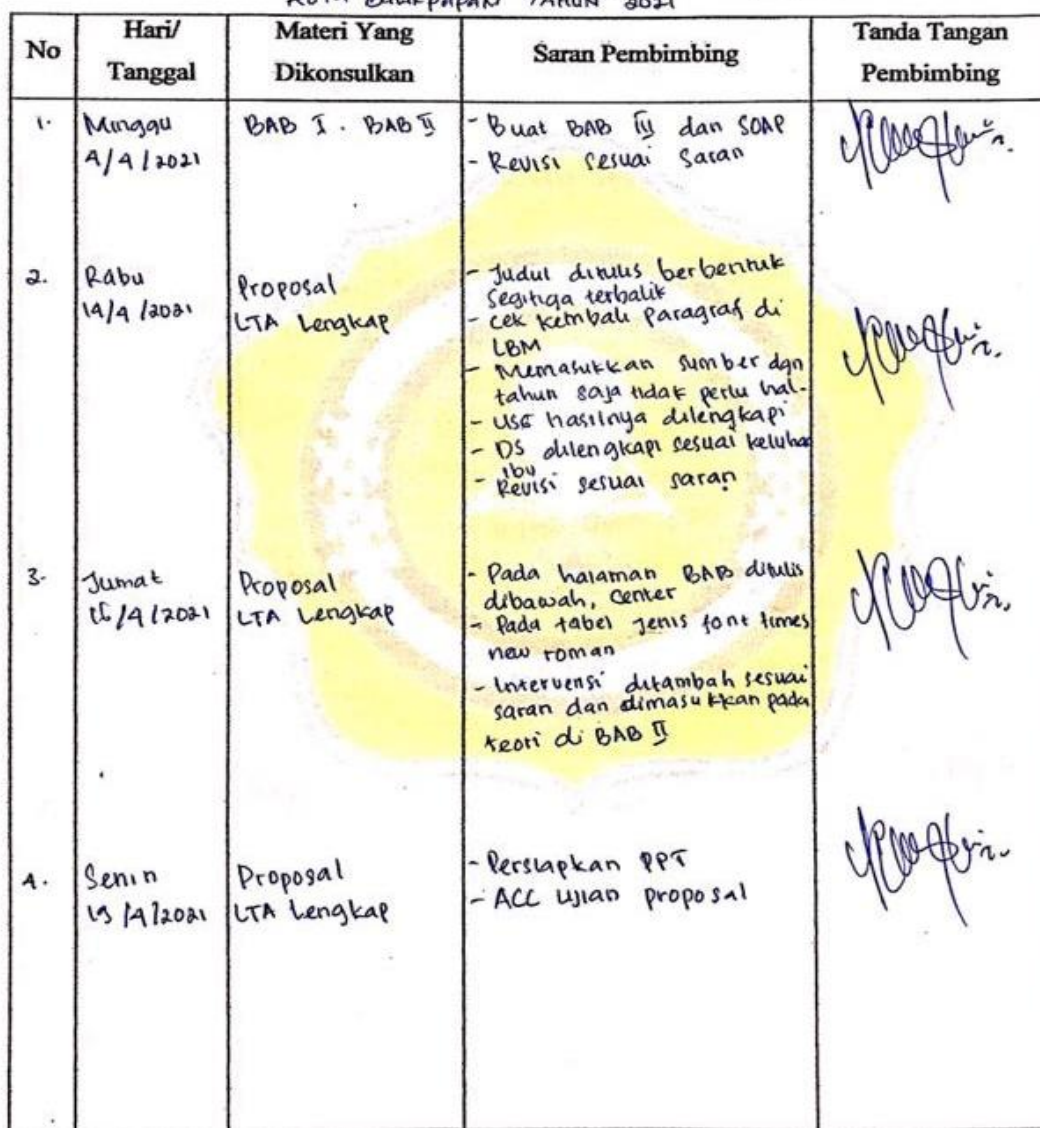 KOTA BALIKPAPAN TAHUN 2021
No
Hari/
Tanggal
Materi Yang
Dikonsulkan
Saran Pembimbing
Tanda Tangan
Pembimbing
1.
Minggu
4/4/2021
BAB I. BAB II
- Buat BAB III dan SOAP
- Revisi sesuai saran
2.
Rabu
14/4/2021
Proposal
LTA Lengkap
- Judul ditulis berbentuk
segitiga terbalik
- cek kembali paragraf di
LBM
- Memasukkan sumber dgn
tahun saja tidak perlu hal-
- USG hasilnya dilengkapi
- DS dilengkapi sesuai keluhan
ibu
- Revisi sesuai saran
3.
Jumat
16/4/2021
Proposal
LTA Lengkap
- Pada halaman BAB ditulis
dibawah, center
- Pada tabel jenis font times
new roman
- Intervensi ditambah sesuai
saran dan dimasukkan pada
teori di BAB II
4.
Senin
19/4/2021
Proposal
LTA Lengkap
- Persiapkan PPT
- ACC ujian proposal